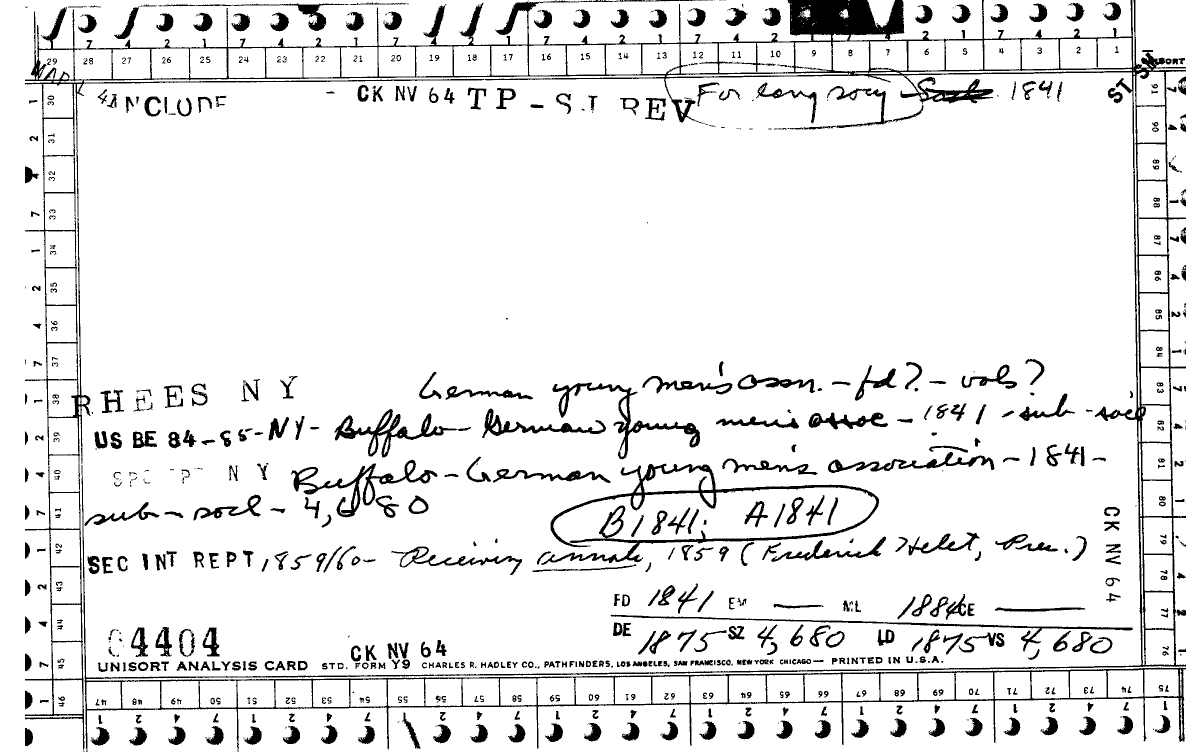 7 4 2 1 7 4 2 1 7 4 2 1 7 4 2 1 7 4 2 1
29 28 27 26 25 24 23 22 21 20 19 18 17 16 15 14 13 12 11 10 9 8 7 6 5 4 3 2 1
CK NV 64 TP - S.J REV For long socy 1841 ST
RHEES N Y German young men's assn. - fd? - vols?
US BE 84-85-NY- Buffalo - German young men's assoc - 1841 - sub - socl
N Y Buffalo - German young men's association - 1841 -
sub - socl - 4,680
B1841; A1841
SEC INT REPT 1859/60 - Receiving annals, 1859 (Frederick Helet, Pres.)
FD 1841 EM — ML 1884 CE —
DE 1875 SZ 4,680 LD 1875 VS 4,680
04404 CK NV 64
UNISORT ANALYSIS CARD STD. FORM Y9 CHARLES R. HADLEY CO., PATHFINDERS, LOS ANGELES, SAN FRANCISCO, NEW YORK CHICAGO — PRINTED IN U.S.A.
CK NV 64
30 31 32 33 34 35 36 37 38 39 40 41 42 43 44 45 46
47 48 49 50 51 52 53 54 55 56 57 58 59 60 61 62 63 64 65 66 67 68 69 70 71 72 73 74 75
76 77 78 79 80 81 82 83 84 85 86 87 88 89 90 91